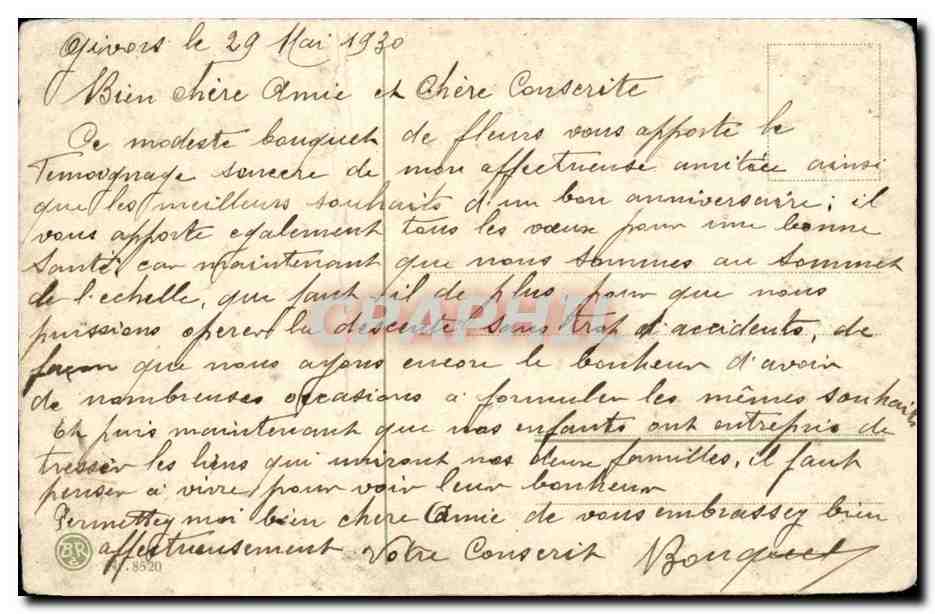 Givors le 29 Mai 1930
Bien chère Amie et chère Conscrite
Ce modeste bouquet de fleurs vous apporte le
Temoignage sincere de mon affectueuse amitiée ainsi
que les meilleurs souhaits d'un bon anniversaire; il
vous apporte egalement tous les vœux pour une bonne
Santé, car maintenant que nous sommes au sommet
de l'echelle, que faut il de plus pour que nous
puissions operer la descente sans trop d'accidents, de
façon que nous ayons encore le bonheur d'avoir
de nombreuses occasions à formuler les mêmes souhaits
Et puis maintenant que nos enfants ont entrepris de
tresser les liens qui uniront nos deux familles, il faut
penser à vivre pour voir leur bonheur
Permettez moi bien chere Amie de vous embrassez bien
affectueusement Votre Conscrit Bouquet
BR
8520
CPAPHIL